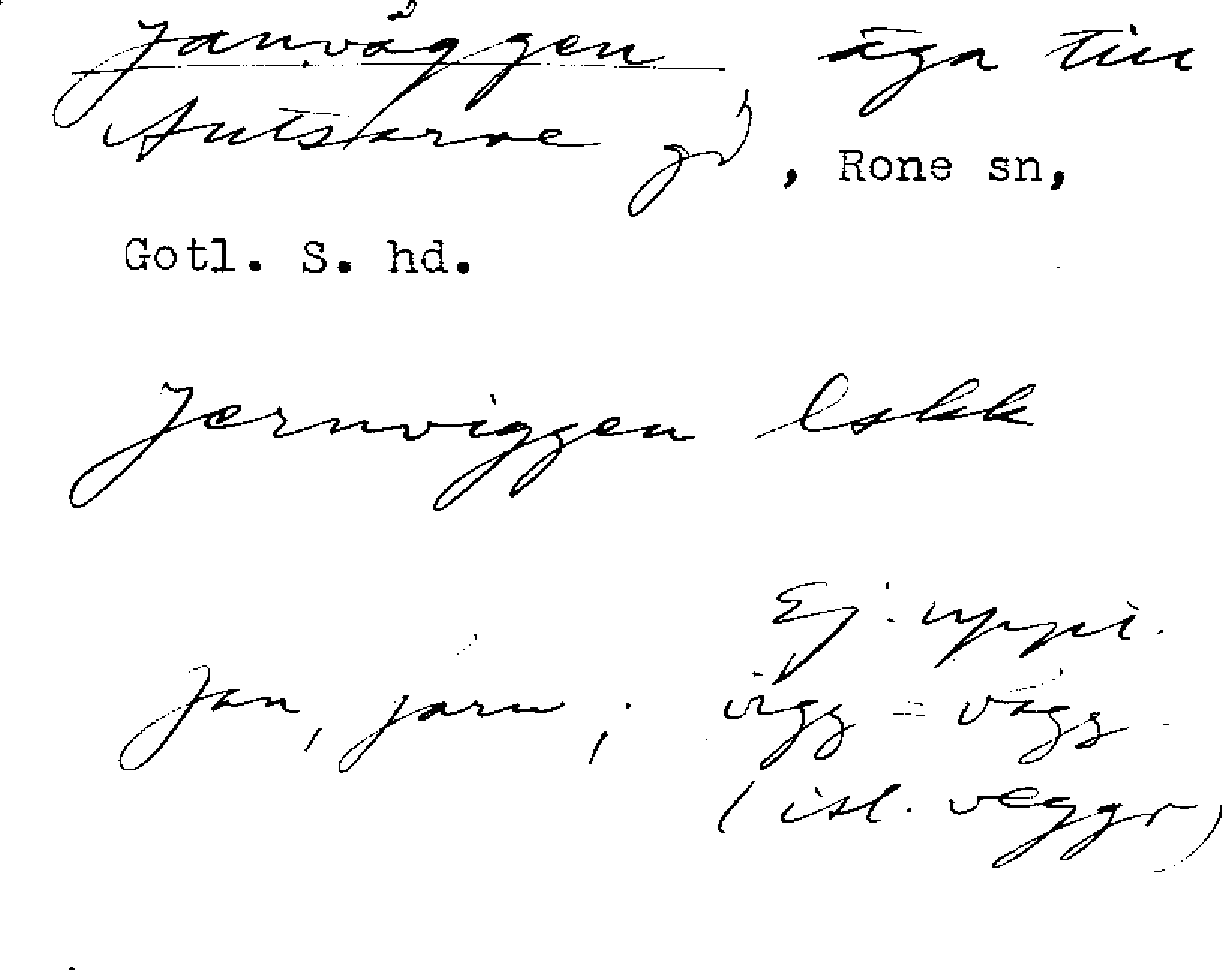 Janväggen, äga till
Autsarve gd, Rone sn,
Gotl. S. hd.
Jernviggen lskk
Ej. uppt.
Jan, järn; vigg = vägg
(isl. veggr)